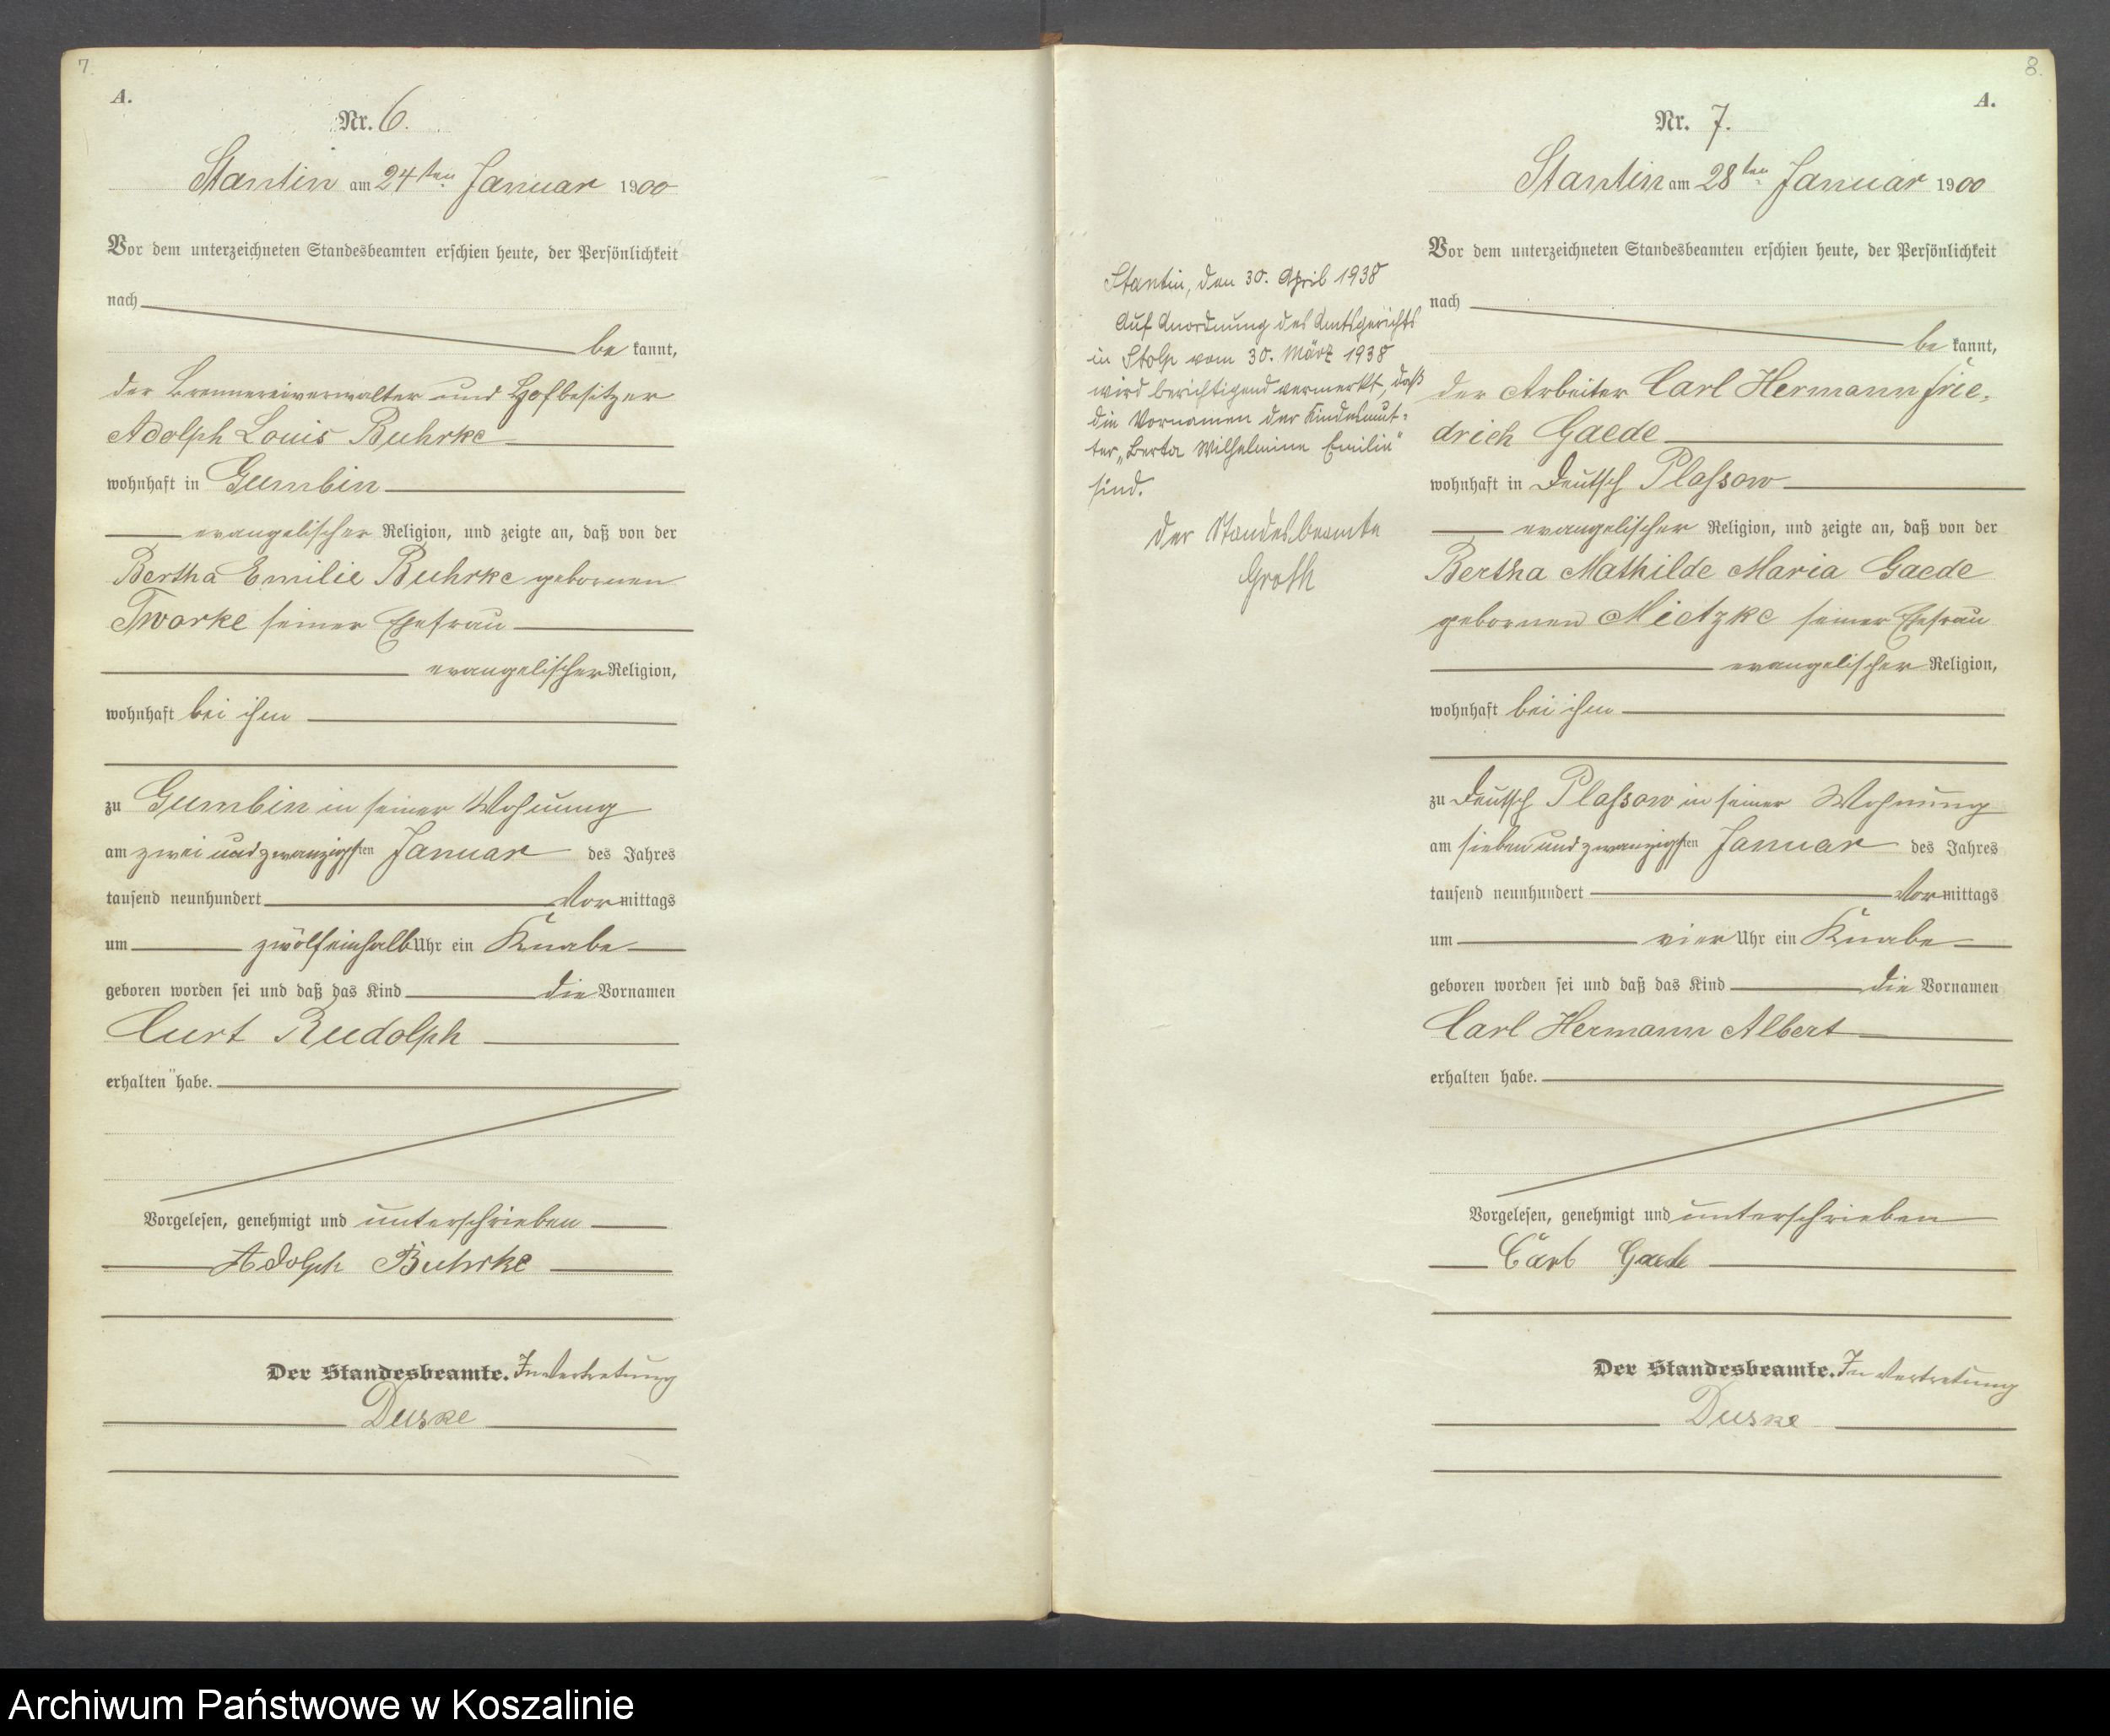 7.
A.
Nr. 6.
Stantin am 24ten Januar 1900
Vor dem unterzeichneten Standesbeamten erschien heute, der Persönlichkeit
nach
be kannt,
der Brennereiverwalter und Hofbesitzer
Adolph Louis Buhrke
wohnhaft in Gumbin
evangelischer Religion, und zeigte an, daß von der
Bertha Emilie Buhrke gebornen
Tworke seiner Ehefrau
evangelischer Religion,
wohnhaft bei ihm
zu Gumbin in seiner Wohnung
am zwei und zwanzigsten Januar des Jahres
tausend neunhundert Vormittags
um zwölfeinhalb Uhr ein Knabe
geboren worden sei und daß das Kind die Vornamen
Curt Rudolph
erhalten habe.
Vorgelesen, genehmigt und unterschrieben
Adolph Buhrke
Der Standesbeamte. In Vertretung
Duske
8.
A.
Nr. 7.
Stantin am 28ten Januar 1900
Vor dem unterzeichneten Standesbeamten erschien heute, der Persönlichkeit
nach
be kannt,
der Arbeiter Carl Hermann Frie-
drich Gaede
wohnhaft in Deutsch Plassow
evangelischer Religion, und zeigte an, daß von der
Bertha Mathilde Maria Gaede
gebornen Mietzke seiner Ehefrau
evangelischer Religion,
wohnhaft bei ihm
zu Deutsch Plassow in seiner Wohnung
am sieben und zwanzigsten Januar des Jahres
tausend neunhundert Vormittags
um vier Uhr ein Knabe
geboren worden sei und daß das Kind die Vornamen
Carl Hermann Albert
erhalten habe.
Vorgelesen, genehmigt und unterschrieben
Carl Gaede
Der Standesbeamte. In Vertretung
Duske
Stantin, den 30. April 1938
Auf Anordnung des Amtsgerichts
in Stolp vom 30. März 1938
wird berichtigend vermerkt, daß
die Vornamen der Kindesmut-
ter „Berta Wilhelmine Emilie"
sind.
Der Standesbeamte
Groth
Archiwum Państwowe w Koszalinie